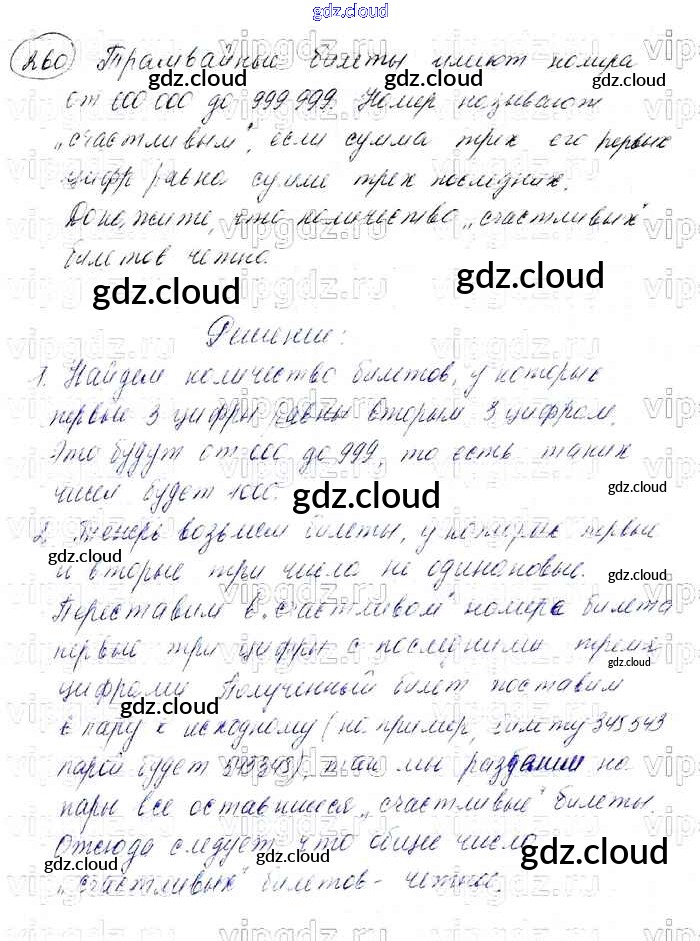 gdz.cloud
260 Трамвайные билеты имеют номера
от 000 000 до 999 999. Номер называют
„счастливым", если сумма трех его первых
цифр равна сумме трех последних.
Докажите, что количество „счастливых"
билетов четно.
Решение:
1. Найдем количество билетов, у которых
первые 3 цифры равны вторым 3 цифрам.
Это будут от 000 до 999, то есть таких
чисел будет 1000.
2. Теперь возьмем билеты, у которых первые
и вторые три числа не одинаковые.
Переставим в „счастливом" номере билета
первые три цифры с последними тремя
цифрами. Полученный билет поставим
в пару к исходному (на пример, билету 345543
парой будет 543345), так мы разбили на
пары все оставшиеся „счастливые" билеты.
Отсюда следует, что общее число
„счастливых" билетов - четное.